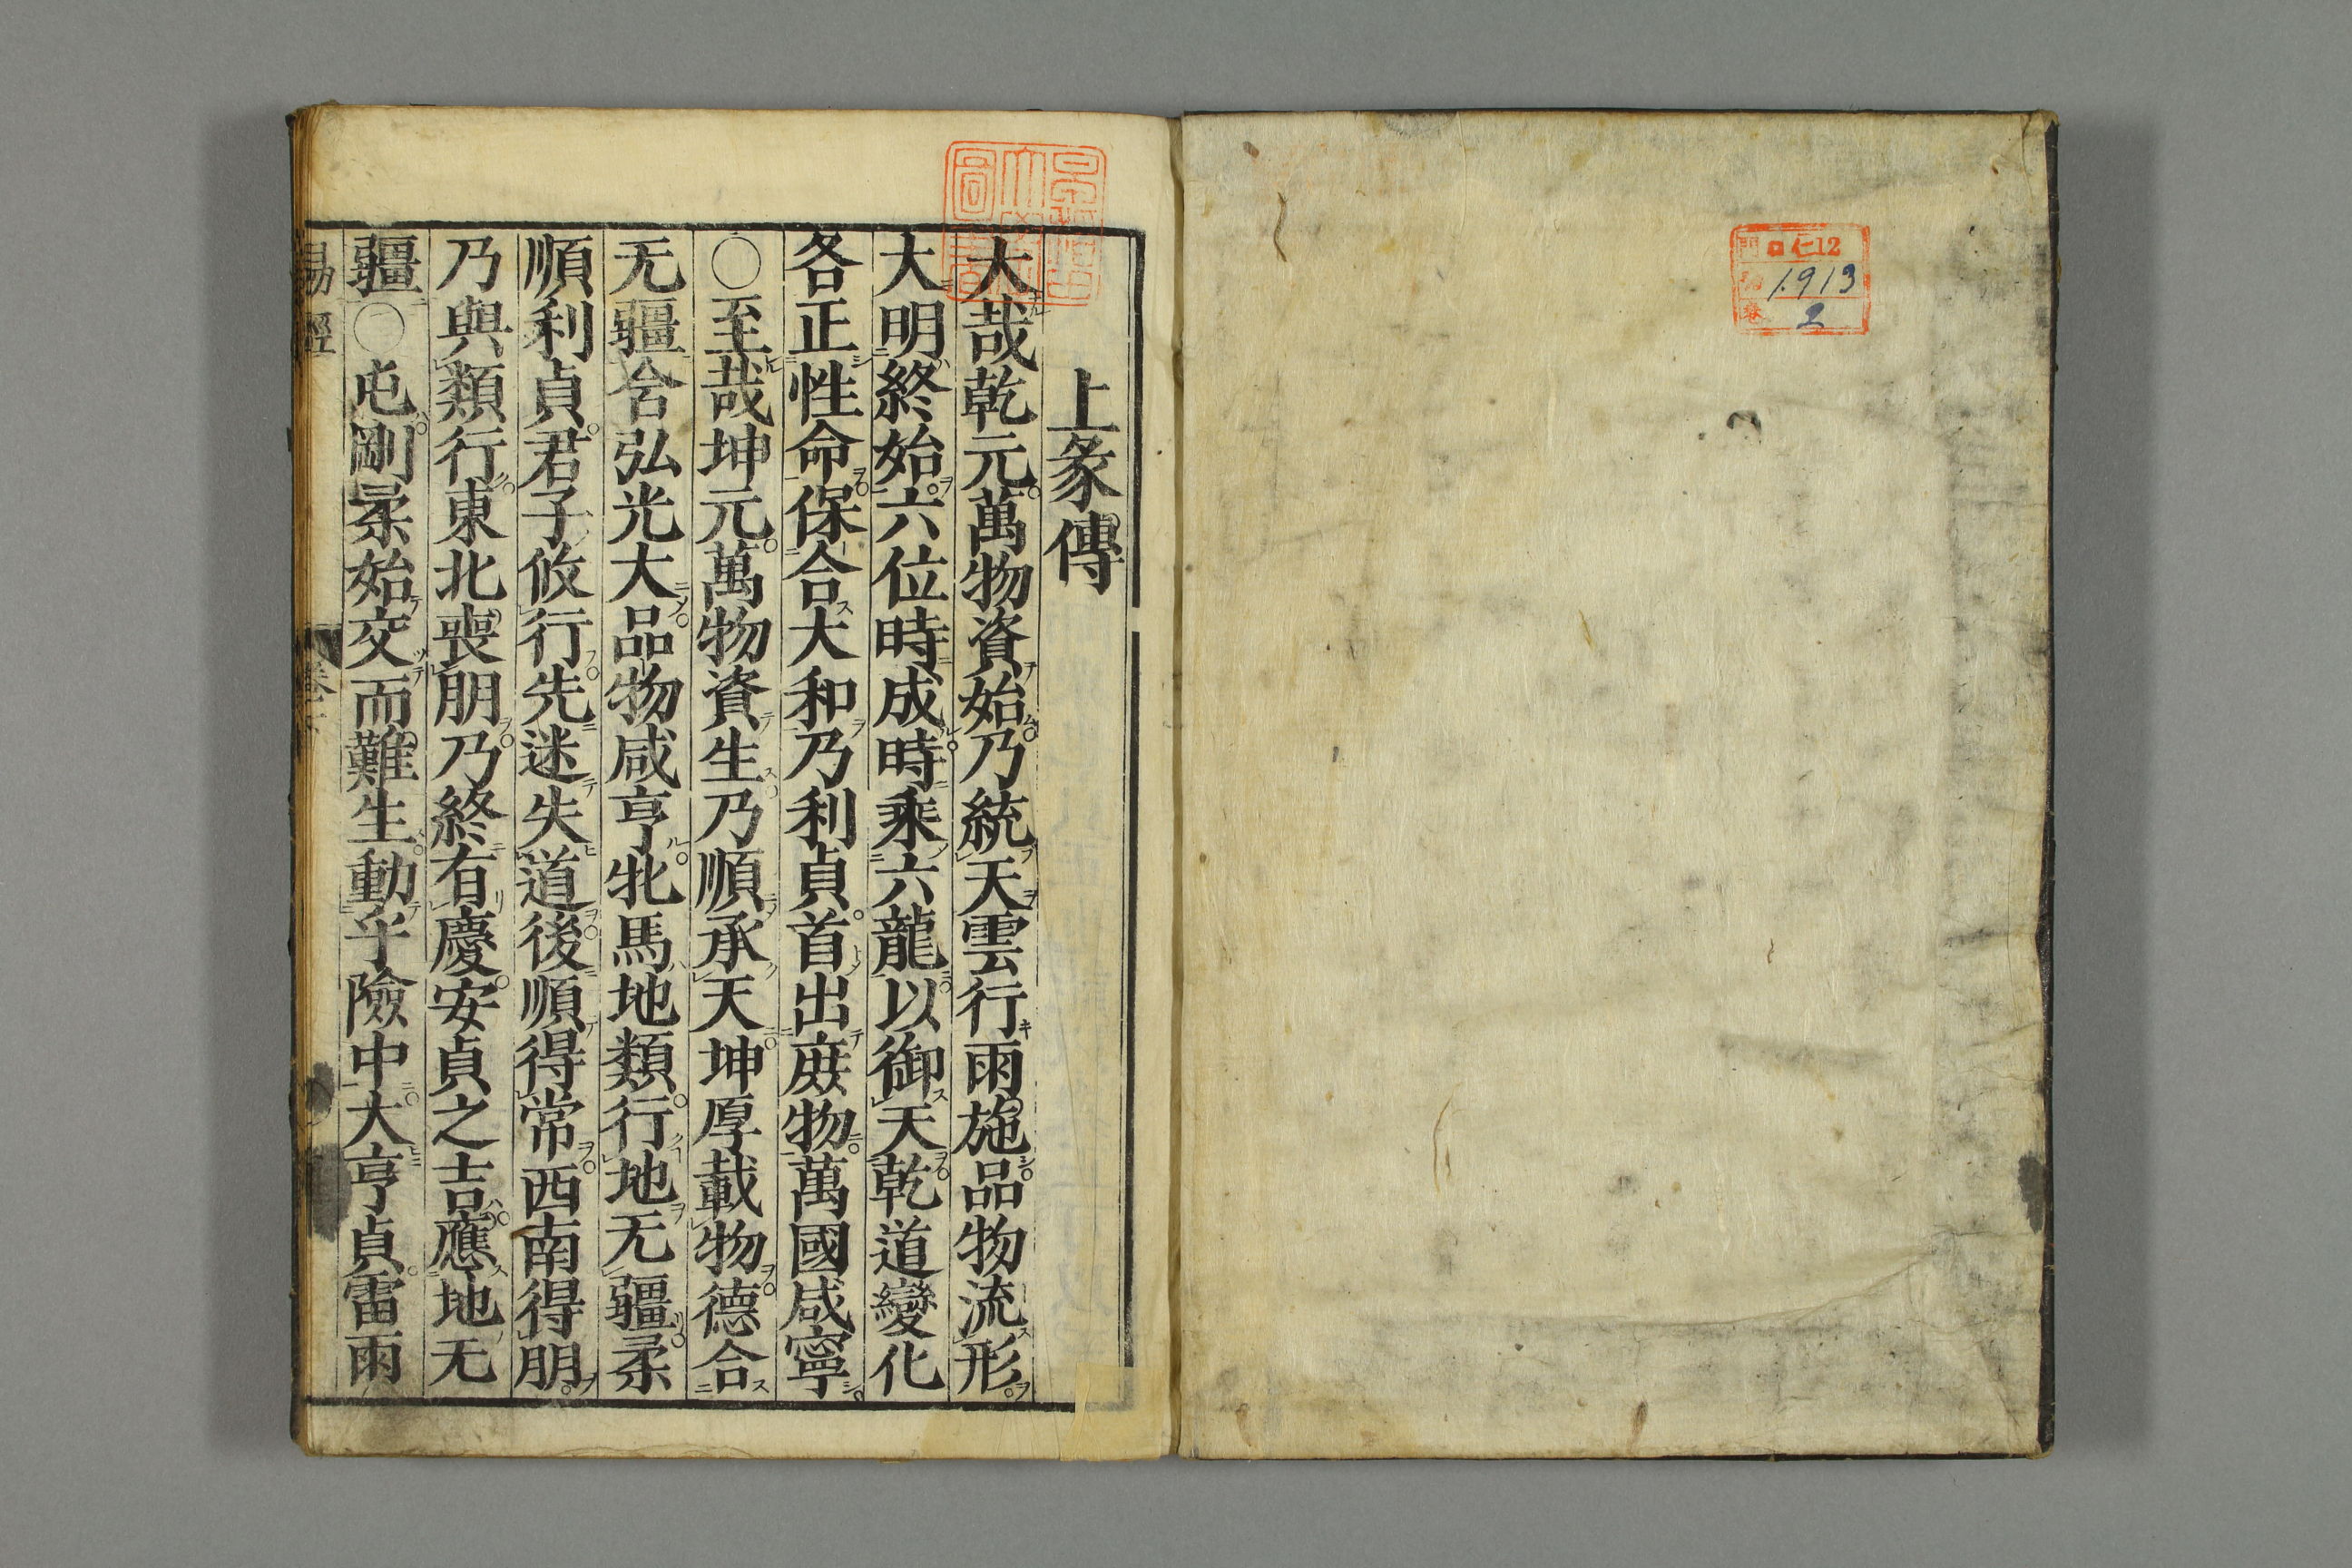 門 ロ仁12
號 1913
卷 2
上彖傳
大哉乾元萬物資始乃統天雲行雨施品物流形
大明終始六位時成時乘六龍以御天乾道變化
各正性命保合大和乃利貞首出庻物萬國咸寧
○至哉坤元萬物資生乃順承天坤厚載物德合
无疆含弘光大品物咸亨牝馬地類行地无疆柔
順利貞君子攸行先迷失道後順得常西南得朋
乃與類行東北喪朋乃終有慶安貞之吉應地无
疆○屯剛柔始交而難生動乎險中大亨貞雷雨
易經